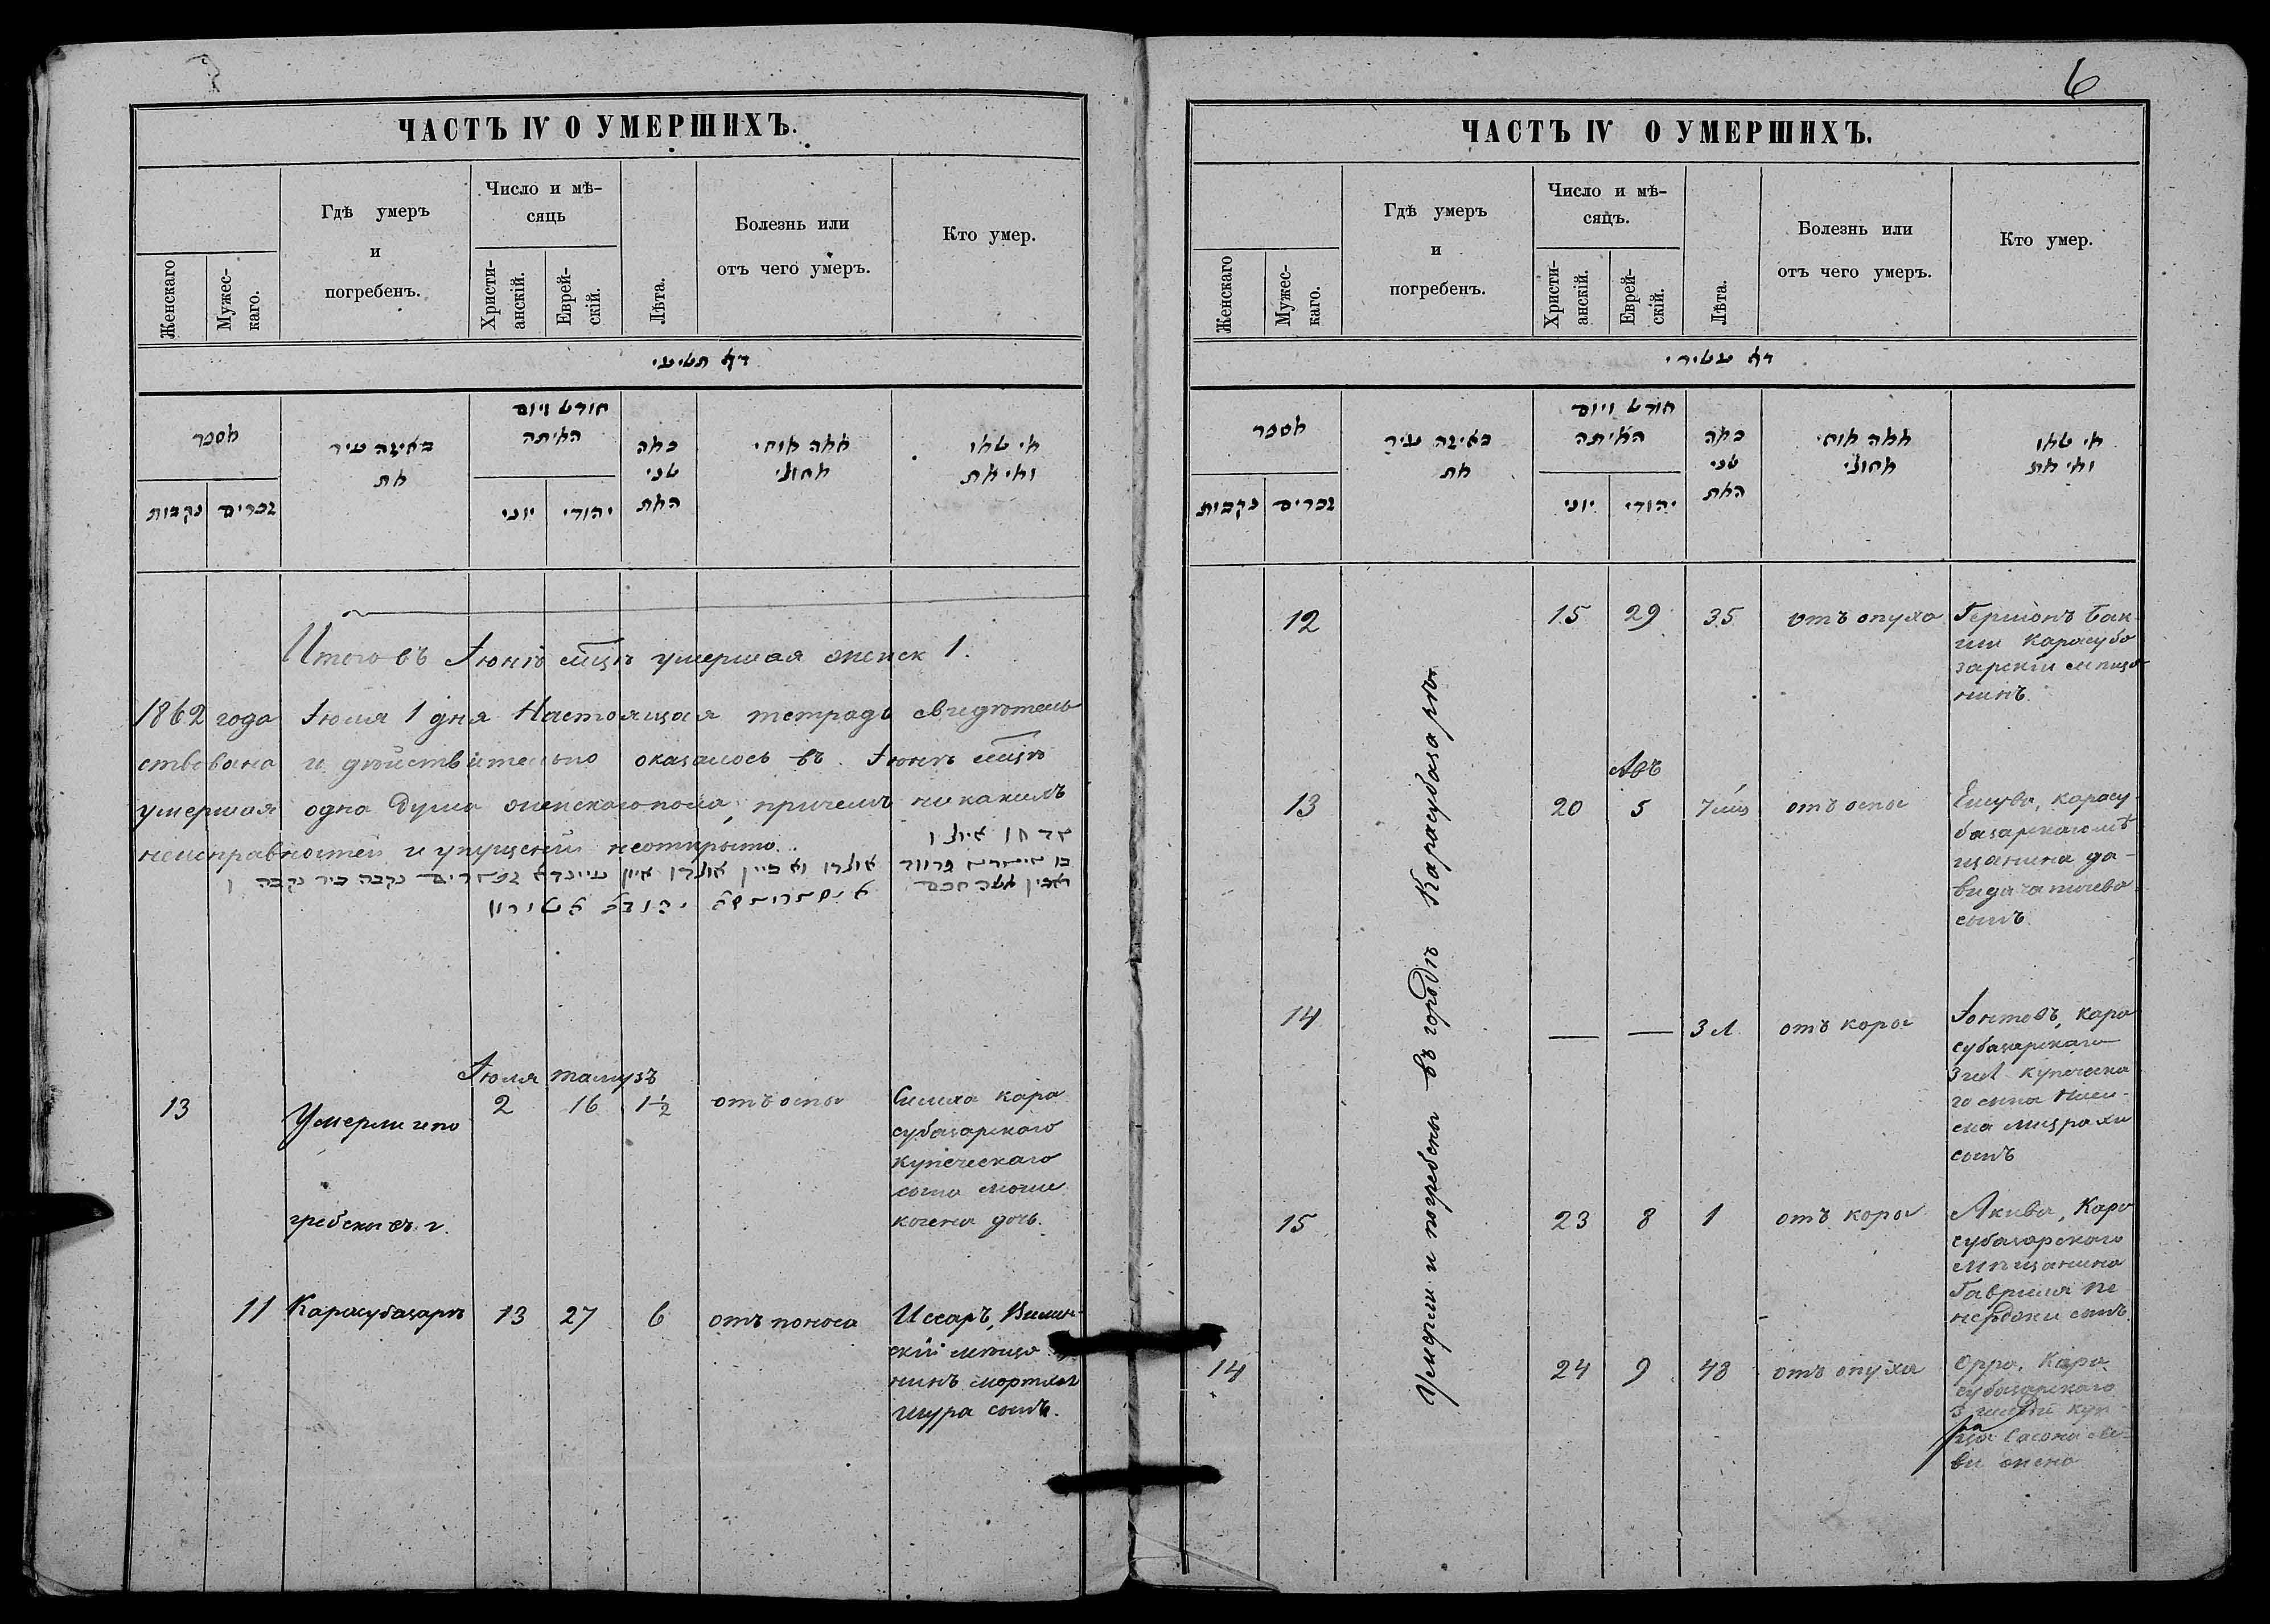 ЧАСТЪ IV О УМЕРШИХЪ.
Женскаго
Мужес-
каго.
Гдѣ умеръ
и
погребенъ.
Число и мѣ-
сяць
Христи-
анскій.
Еврей-
скій.
Лѣта.
Болезнь или
отъ чего умеръ.
Кто умер.
דף תשיעי
מספר
נקבות
זכרים
באיזה עיר
מת
חודש ויום
המיתה
יוני
יהודי
כמה
שני
המת
מי שמו
ומי מת
Итого въ Іюнѣ мцѣ умершая женск 1.
1862 года Іюля 1 дня Настоящая тетрадь свидѣтель
ствована и дѣйствительно оказалось въ Іюнѣ мцѣ
умершая одна душа женскаго пола, причемъ никакихъ
неисправностей и упущеній неоткрыто.
Іюля тамузъ
13
Умерли и по
гребены въ г.
2 16 1½
отъ оспы
Симха кара
субазарскаго
купеческаго
сына моше
когена дочь.
11 Карасубазарѣ 13 27 6 отъ поноса
Иссаръ, Вилен-
скій мѣща
нинъ
шура сынъ.
6
ЧАСТЪ IV О УМЕРШИХЪ.
Женскаго
Мужес-
каго.
Гдѣ умеръ
и
погребенъ.
Число и мѣ-
сяцъ.
Христи-
анскій.
Еврей-
скій.
Лѣта.
Болезнь или
отъ чего умеръ.
Кто умер.
דף עשירי
מספר
נקבות
זכרים
באיזה עיר
מת
חודש ויום
המיתה
יוני
יהודי
כמה
שני
המת
מי שמו
ומי מת
Умерли и погребены въ городѣ Карасубазарѣ.
12 15 29 35 отъ опуха
Гершонъ Бак-
ши Карасуба
зарскій мѣща
нинъ.
Авъ
13 20 5 7 мц отъ оспы
Ешува, карасу-
базарскаго мѣ
щанина да-
вида
сынъ.
14 — — 3 л отъ коры
Іомтовъ, кара
субазарскаго
3 гил купеческа
го сына
мизрахи
сынъ
15 23 8 1 отъ коры
Акива, Кара
субазарскаго
мѣщанина
Гавриила пе
нерджи сынъ.
14 24 9 48 отъ опуха
Орра, Кара
субазарскаго
3 гильдіи куп
ца Сасона ле-
ви жена